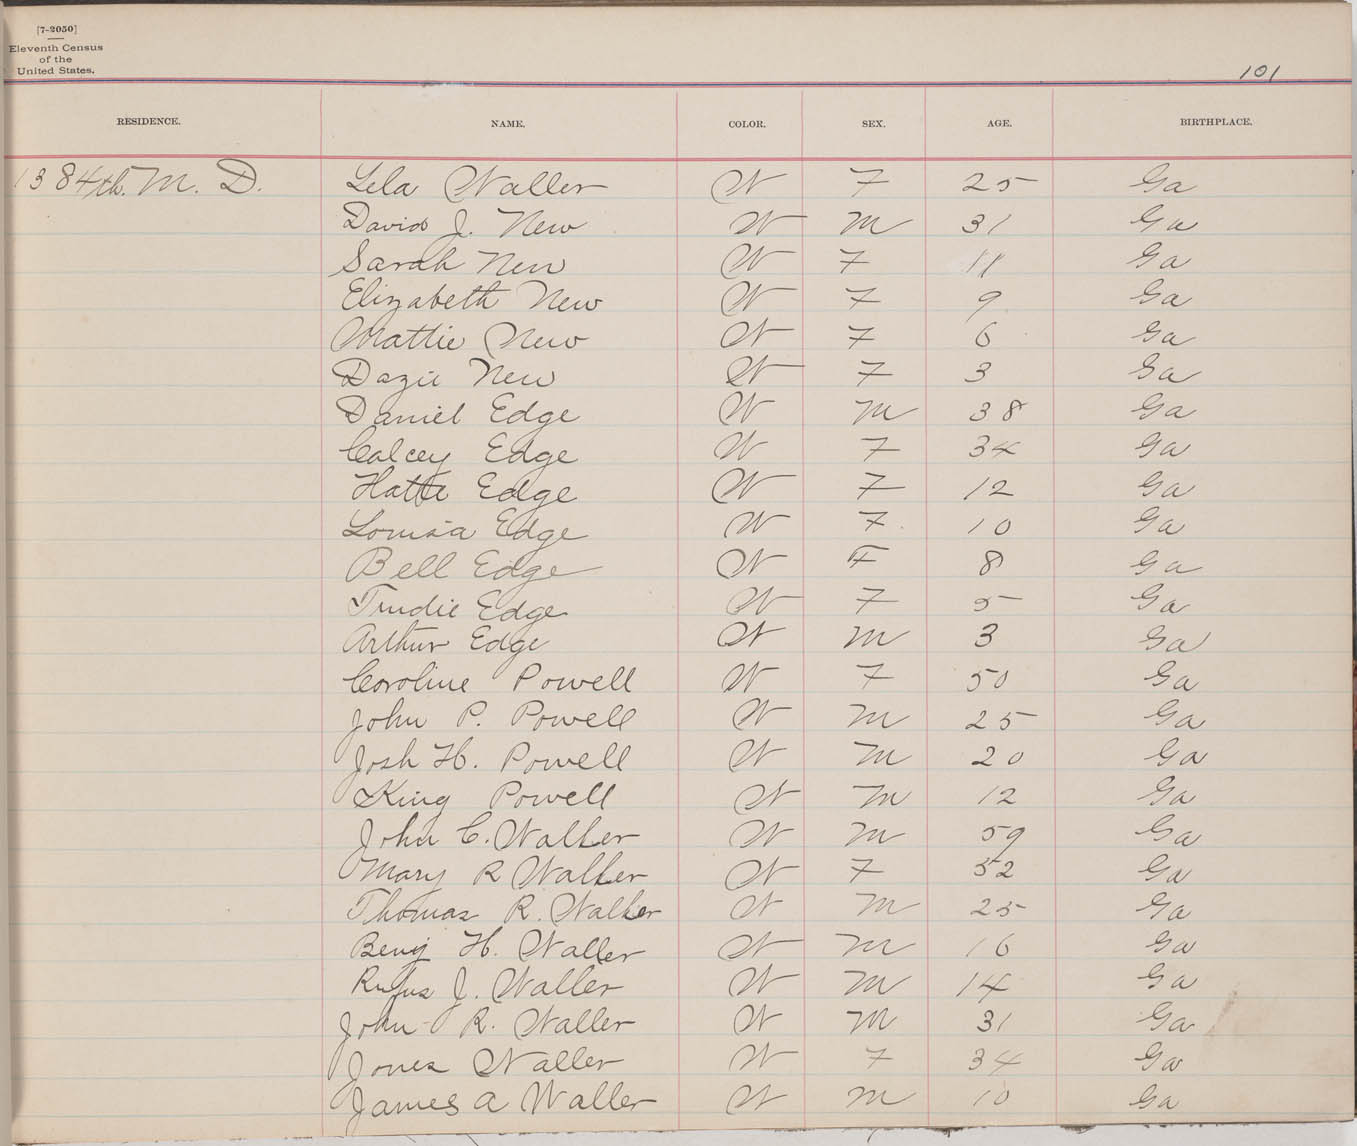 [7-2050]
Eleventh Census
of the
United States.
101
RESIDENCE. NAME. COLOR. SEX. AGE. BIRTHPLACE.
1384th. M. D. Lela Waller W F 25 Ga
David J. New W M 31 Ga
Sarah New W F 11 Ga
Elizabeth New W F 9 Ga
Mattie New W F 6 Ga
Dazie New W F 3 Ga
Daniel Edge W M 38 Ga
Calcey Edge W F 34 Ga
Hattie Edge W F 12 Ga
Louisa Edge W F 10 Ga
Bell Edge W F 8 Ga
Trudie Edge W F 5 Ga
Arthur Edge W M 3 Ga
Caroline Powell W F 50 Ga
John P. Powell W M 25 Ga
Josh H. Powell W M 20 Ga
King Powell W M 12 Ga
John C. Walker W M 59 Ga
Mary R Walker W F 52 Ga
Thomas R. Walker W M 25 Ga
Benj H. Waller W M 16 Ga
Rufus J. Waller W M 14 Ga
John R. Waller W M 31 Ga
Jones Waller W F 34 Ga
James A Waller W M 10 Ga